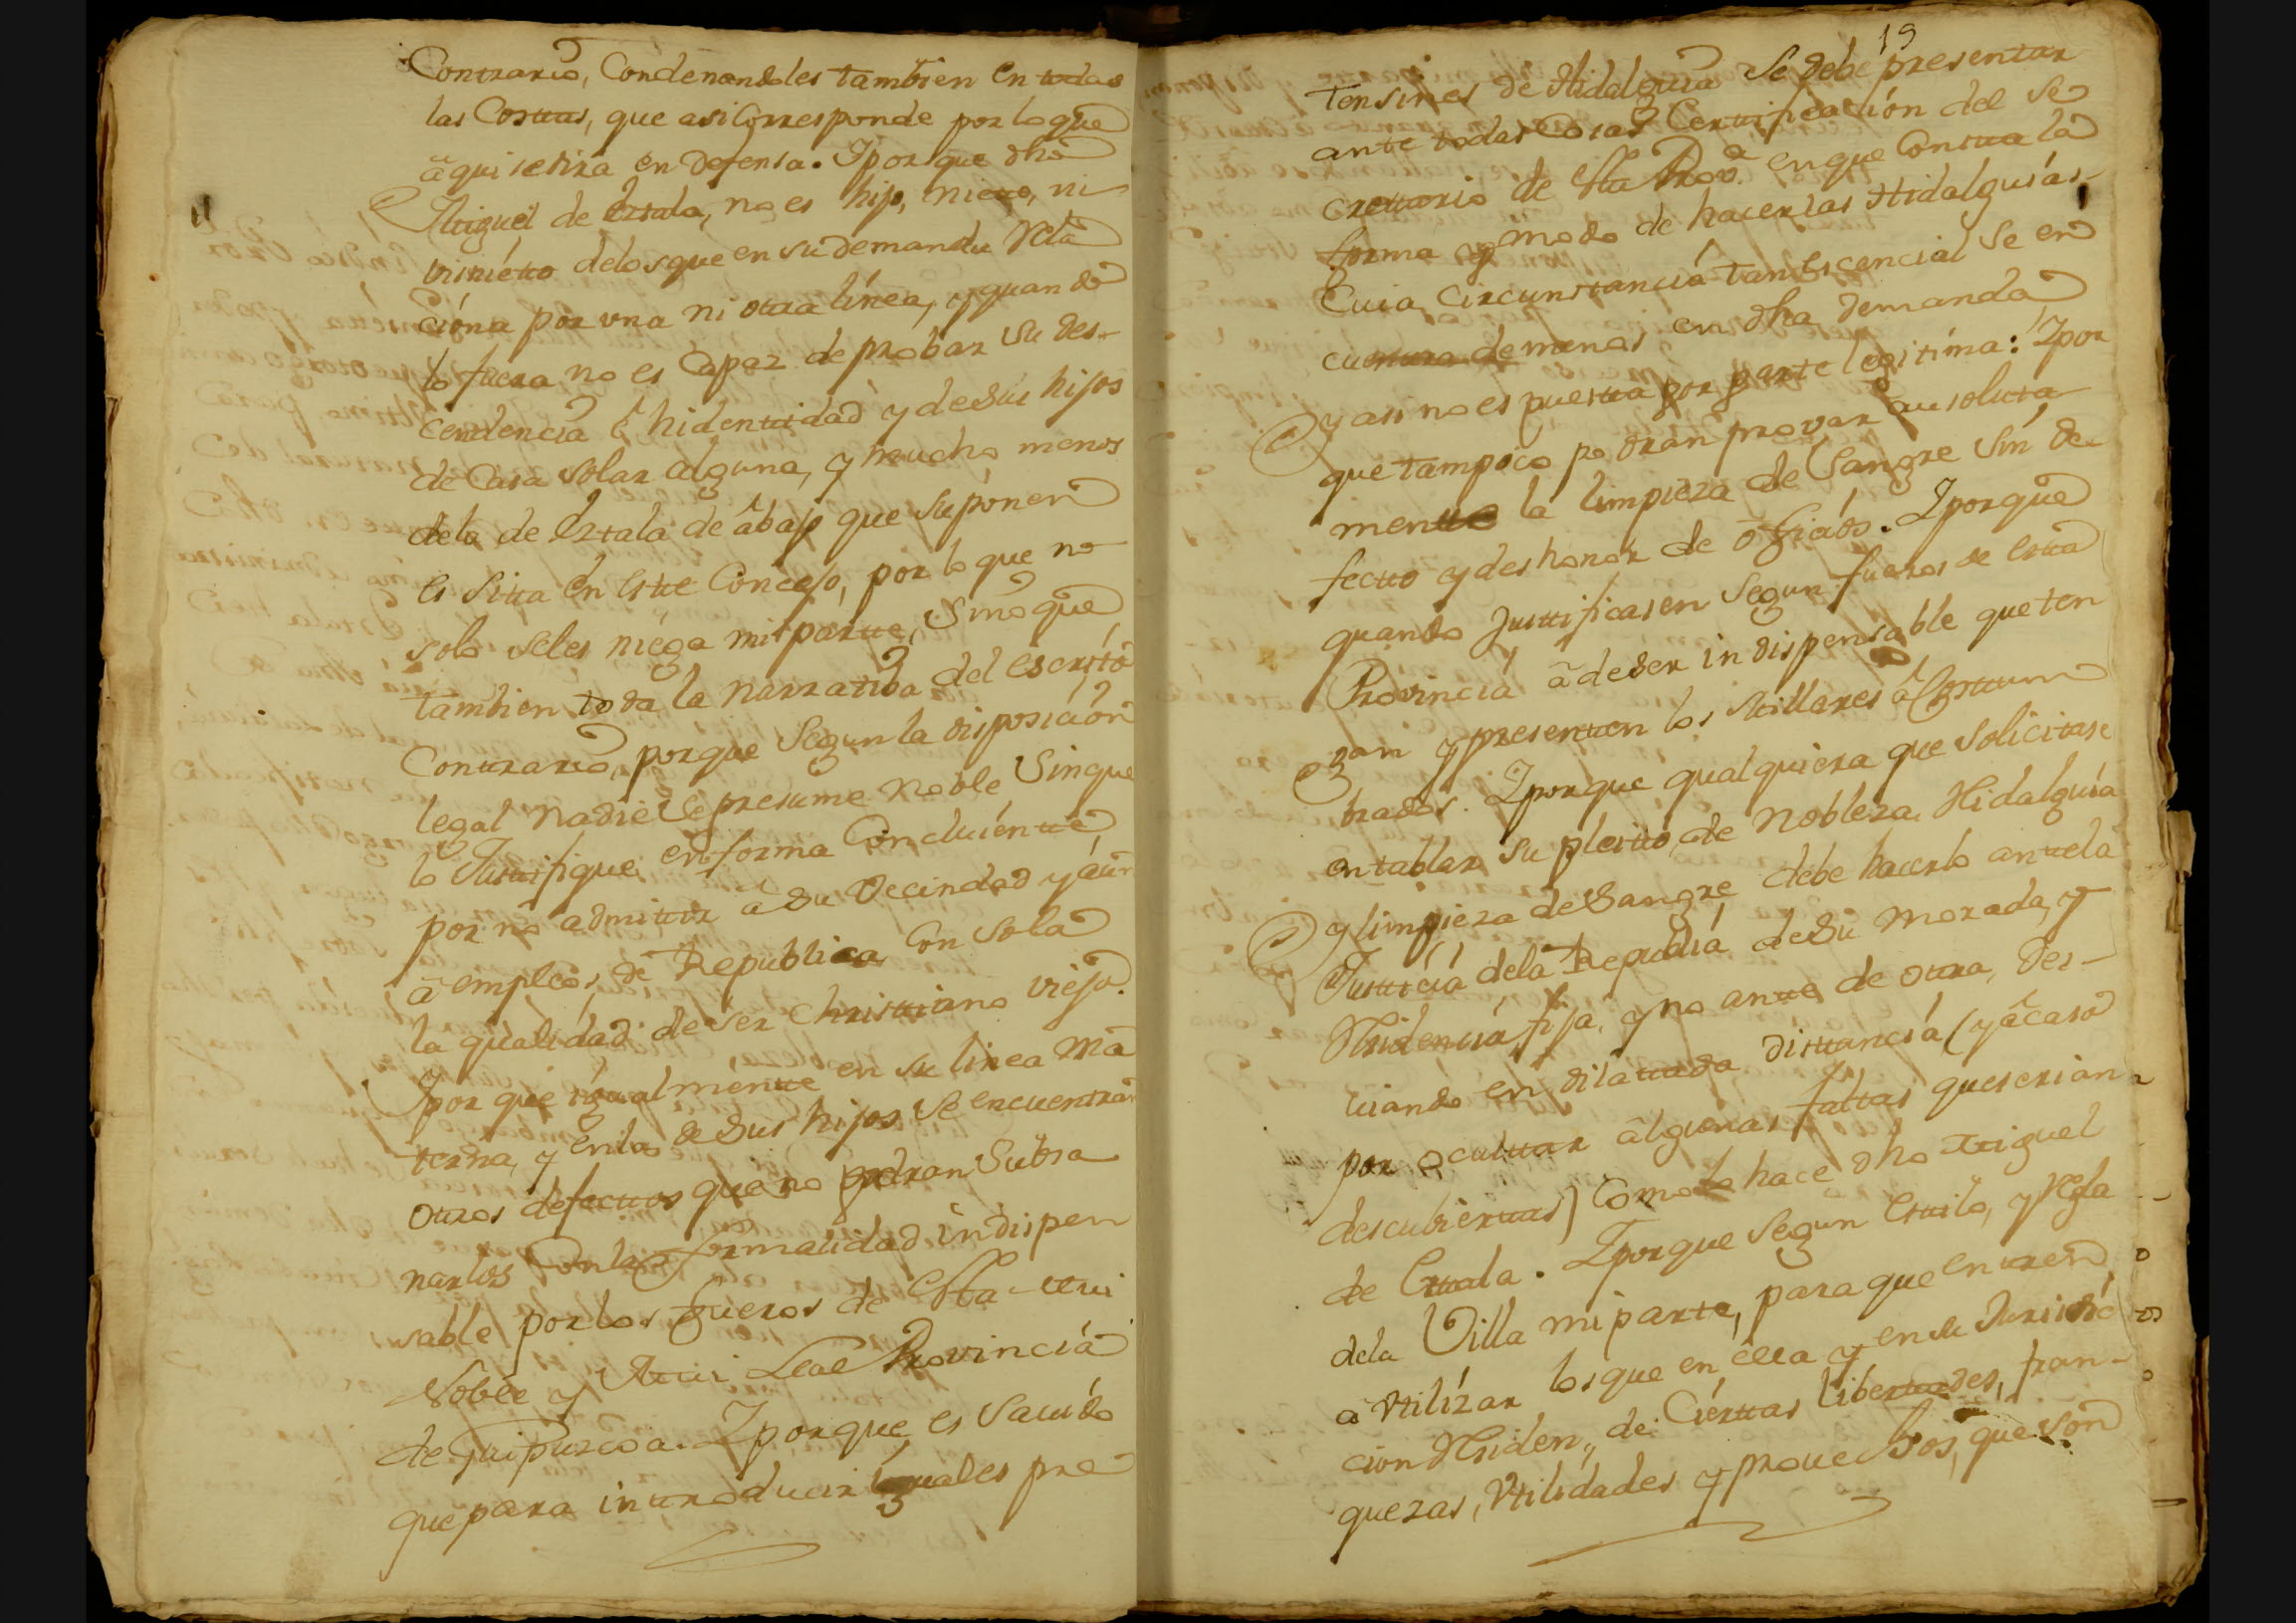 Contrario, Condenandoles tambien en todas
las Costtas, que asi Corresponde por lo que
aqui se dira en defensa. Y por que dho
Miguel de Eztala, no es hijo, nieto, ni
visnietto de los que en su demanda Rela
ciona por una ni otra linea, y quando
lo fuera no es Capaz de probar su des-
cendencia è hidenttidad y de sus hijos
de Casa solar alguna, y mucho menos
de la de Eztala de abajo que suponen
es sitta en estte Concejo, por lo que no
solo seles niega mi partte, sino que
tambien toda la narratiba del escrito
Conttrario, porque segun la disposicion
legal nadie se presume noble sin que
lo Justtifique en forma Concluientte
por no admittir a su Vecindad y aun
a empleos de Republica Con sola
la qualidad de ser christtiano viejo.
Y por que igualmentte en su linea Ma
terna, y en las de sus hijos se encuentran
otros defecttos que no podran Subsa
narlos Con la formalidad indispen
sable por los fueros de Estta mui
Noble y Mui Leal Provincia
de Guipuzcoa. Y porque es Savido
que para inttroducir iguales pre
19
tensines de Hidalguia se debe presentar
ante todas Cosas Certtificacion del Se
crettario de estta Prov.ª en que Constta la
forma y modo de hacer las Hidalguias,
Cuia Circunsttancia tan escencial se en
cuenttra de menos en dha demanda
y asi no es puestta por parte legitima: Y por
que tampoco podran provar ausoluta
mentte la limpieza de Sangre sin de
fectto y deshonor de oficios. Y porque
quando Justtificasen segun fueros de estta
Provincia a de ser indispensable que ten
gan y presentten los Millares acosttum
brados. Y porque qualquiera que solicitase
entablar su pleitto de Nobleza Hidalguia
y limpieza de Sangre debe hacerlo antte la
Justticia de la Republica de su Morada, y
Residencia fija, y no antte de otra, des-
uiando en dilattada disttancia (y acaso
por ocultar algunas faltas que serian
descubierttas) Como lo hace dho Miguel
de Ettala. Y porque segun esttilo, y Regla
de la Villa mi parte, para que entren
a Utilizar los que en ella y en su Jurisdic
cion Residen, de Ciertas liberttades, fran-
quezas, Utilidades y prouechos, que son